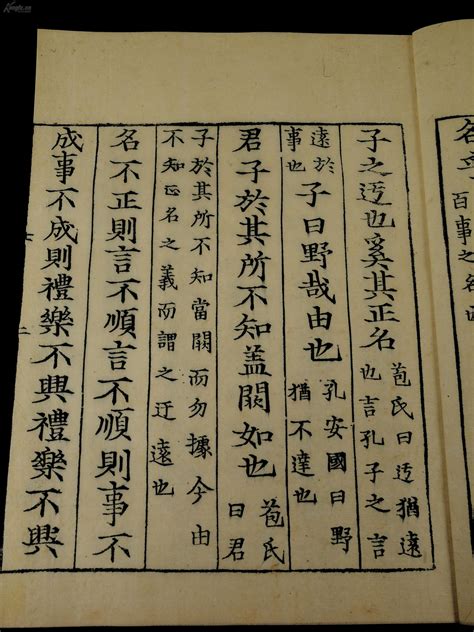 名
百事之名
子之迃也奚其正名
苞氏曰迃猶遠
也言孔子之言
遠於
事也
子曰野哉由也
孔安國曰野
猶不達也
君子於其所不知盖闕如也
苞氏
曰君
子於其所不知當闕而勿據今由
不知正名之義而謂之迂遠也
名不正則言不順言不順則事不
成事不成則禮樂不興禮樂不興